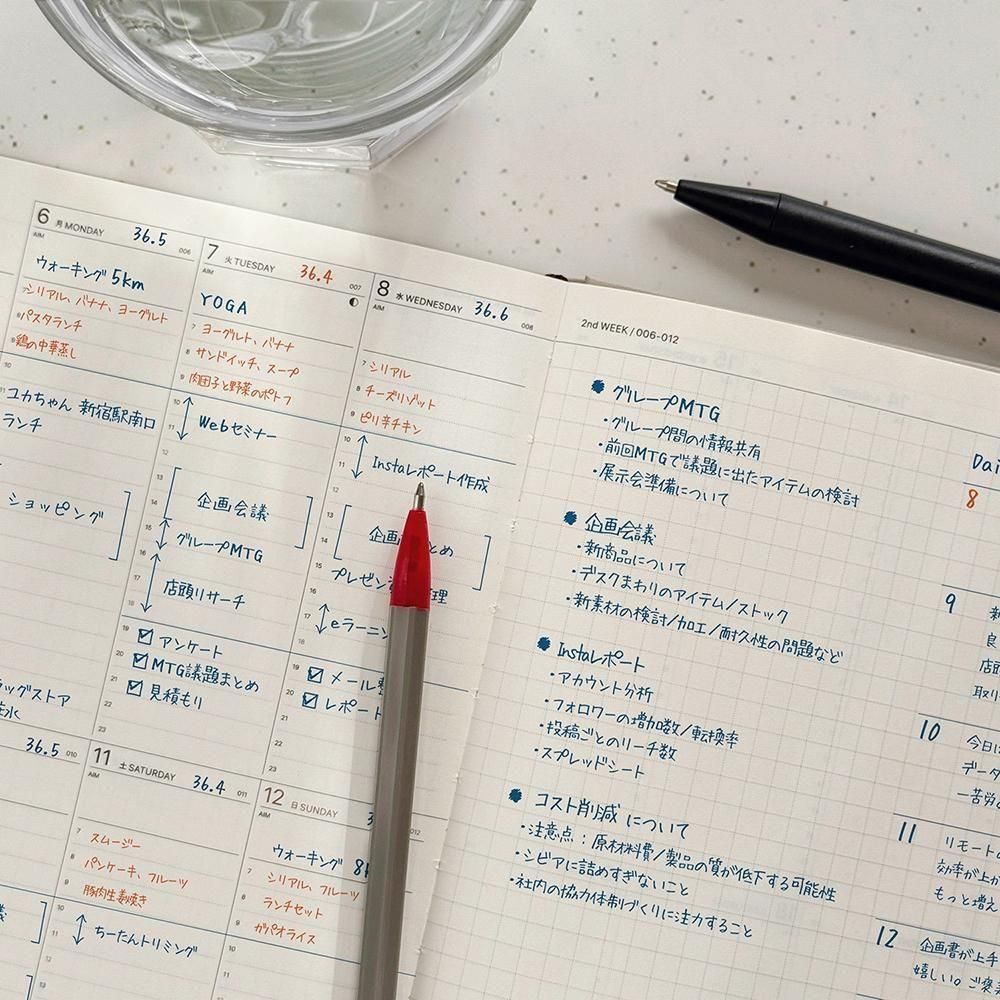 6 月 MONDAY 36.5 006
AIM
ウォーキング 5km
シリアル、バナナ、ヨーグルト
パスタランチ
鶏の中華蒸し
10
11
ユカちゃん 新宿駅南口
ランチ
ショッピング
7 火 TUESDAY 36.4 007
AIM
YOGA
7 ヨーグルト、バナナ
8 サンドイッチ、スープ
9 肉団子と野菜のポトフ
10
11 Webセミナー
12
13
14 企画会議
15
16 グループMTG
17 店頭リサーチ
18
19 ☑ アンケート
20 ☑ MTG議題まとめ
21 ☑ 見積もり
22
23
8 水 WEDNESDAY 36.6 008
AIM
7 シリアル
8 チーズリゾット
9 ピリ辛チキン
10
11 Instaレポート作成
12
13
14 企画 とめ
15 プレゼン 理
16
17 eラーニン
18
19 ☑ メール
20 ☑ レポート
21
22
23
ラッグストア
36.5 010
11 土 SATURDAY 36.4 011
AIM
7 スムージー
8 パンケーキ、フルーツ
9 豚肉生姜焼き
10
11 ちーたんトリミング
12
13
12 日 SUNDAY 3 012
AIM
ウォーキング 8k
7 シリアル、フルーツ
8 ランチセット
9 ガパオライス
10
11
2nd WEEK / 006-012
● グループMTG
・グループ間の情報共有
・前回MTGで議題に出たアイテムの検討
・展示会準備について
● 企画会議
・新商品について
・デスクまわりのアイテム/ストック
・新素材の検討/加工/耐久性の問題など
● Instaレポート
・アカウント分析
・フォロワーの増加数/転換率
・投稿ごとのリーチ数
・スプレッドシート
● コスト削減 について
・注意点：原材料費/製品の質が低下する可能性
・シビアに詰めすぎないこと
・社内の協力体制づくりに注力すること
Dai
8
9
良
店頭
取り
10 今日
データ
一苦労
11 リモートの
効率が上が
もっと増え
12 企画書が上手
嬉しい。ご褒美